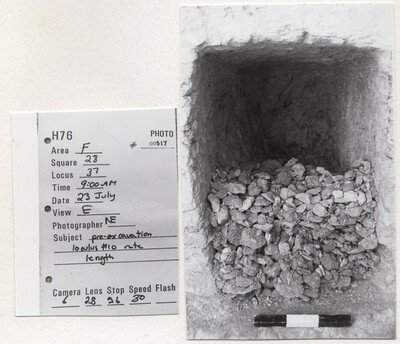 H76 PHOTO
# 00517
Area F
Square 28
Locus 37
Time 9:00 AM
Date 23 July
View E
Photographer NE
Subject pre-excavation
loculus #10 note
length
Camera Lens Stop Speed Flash
6 28 5.6 30